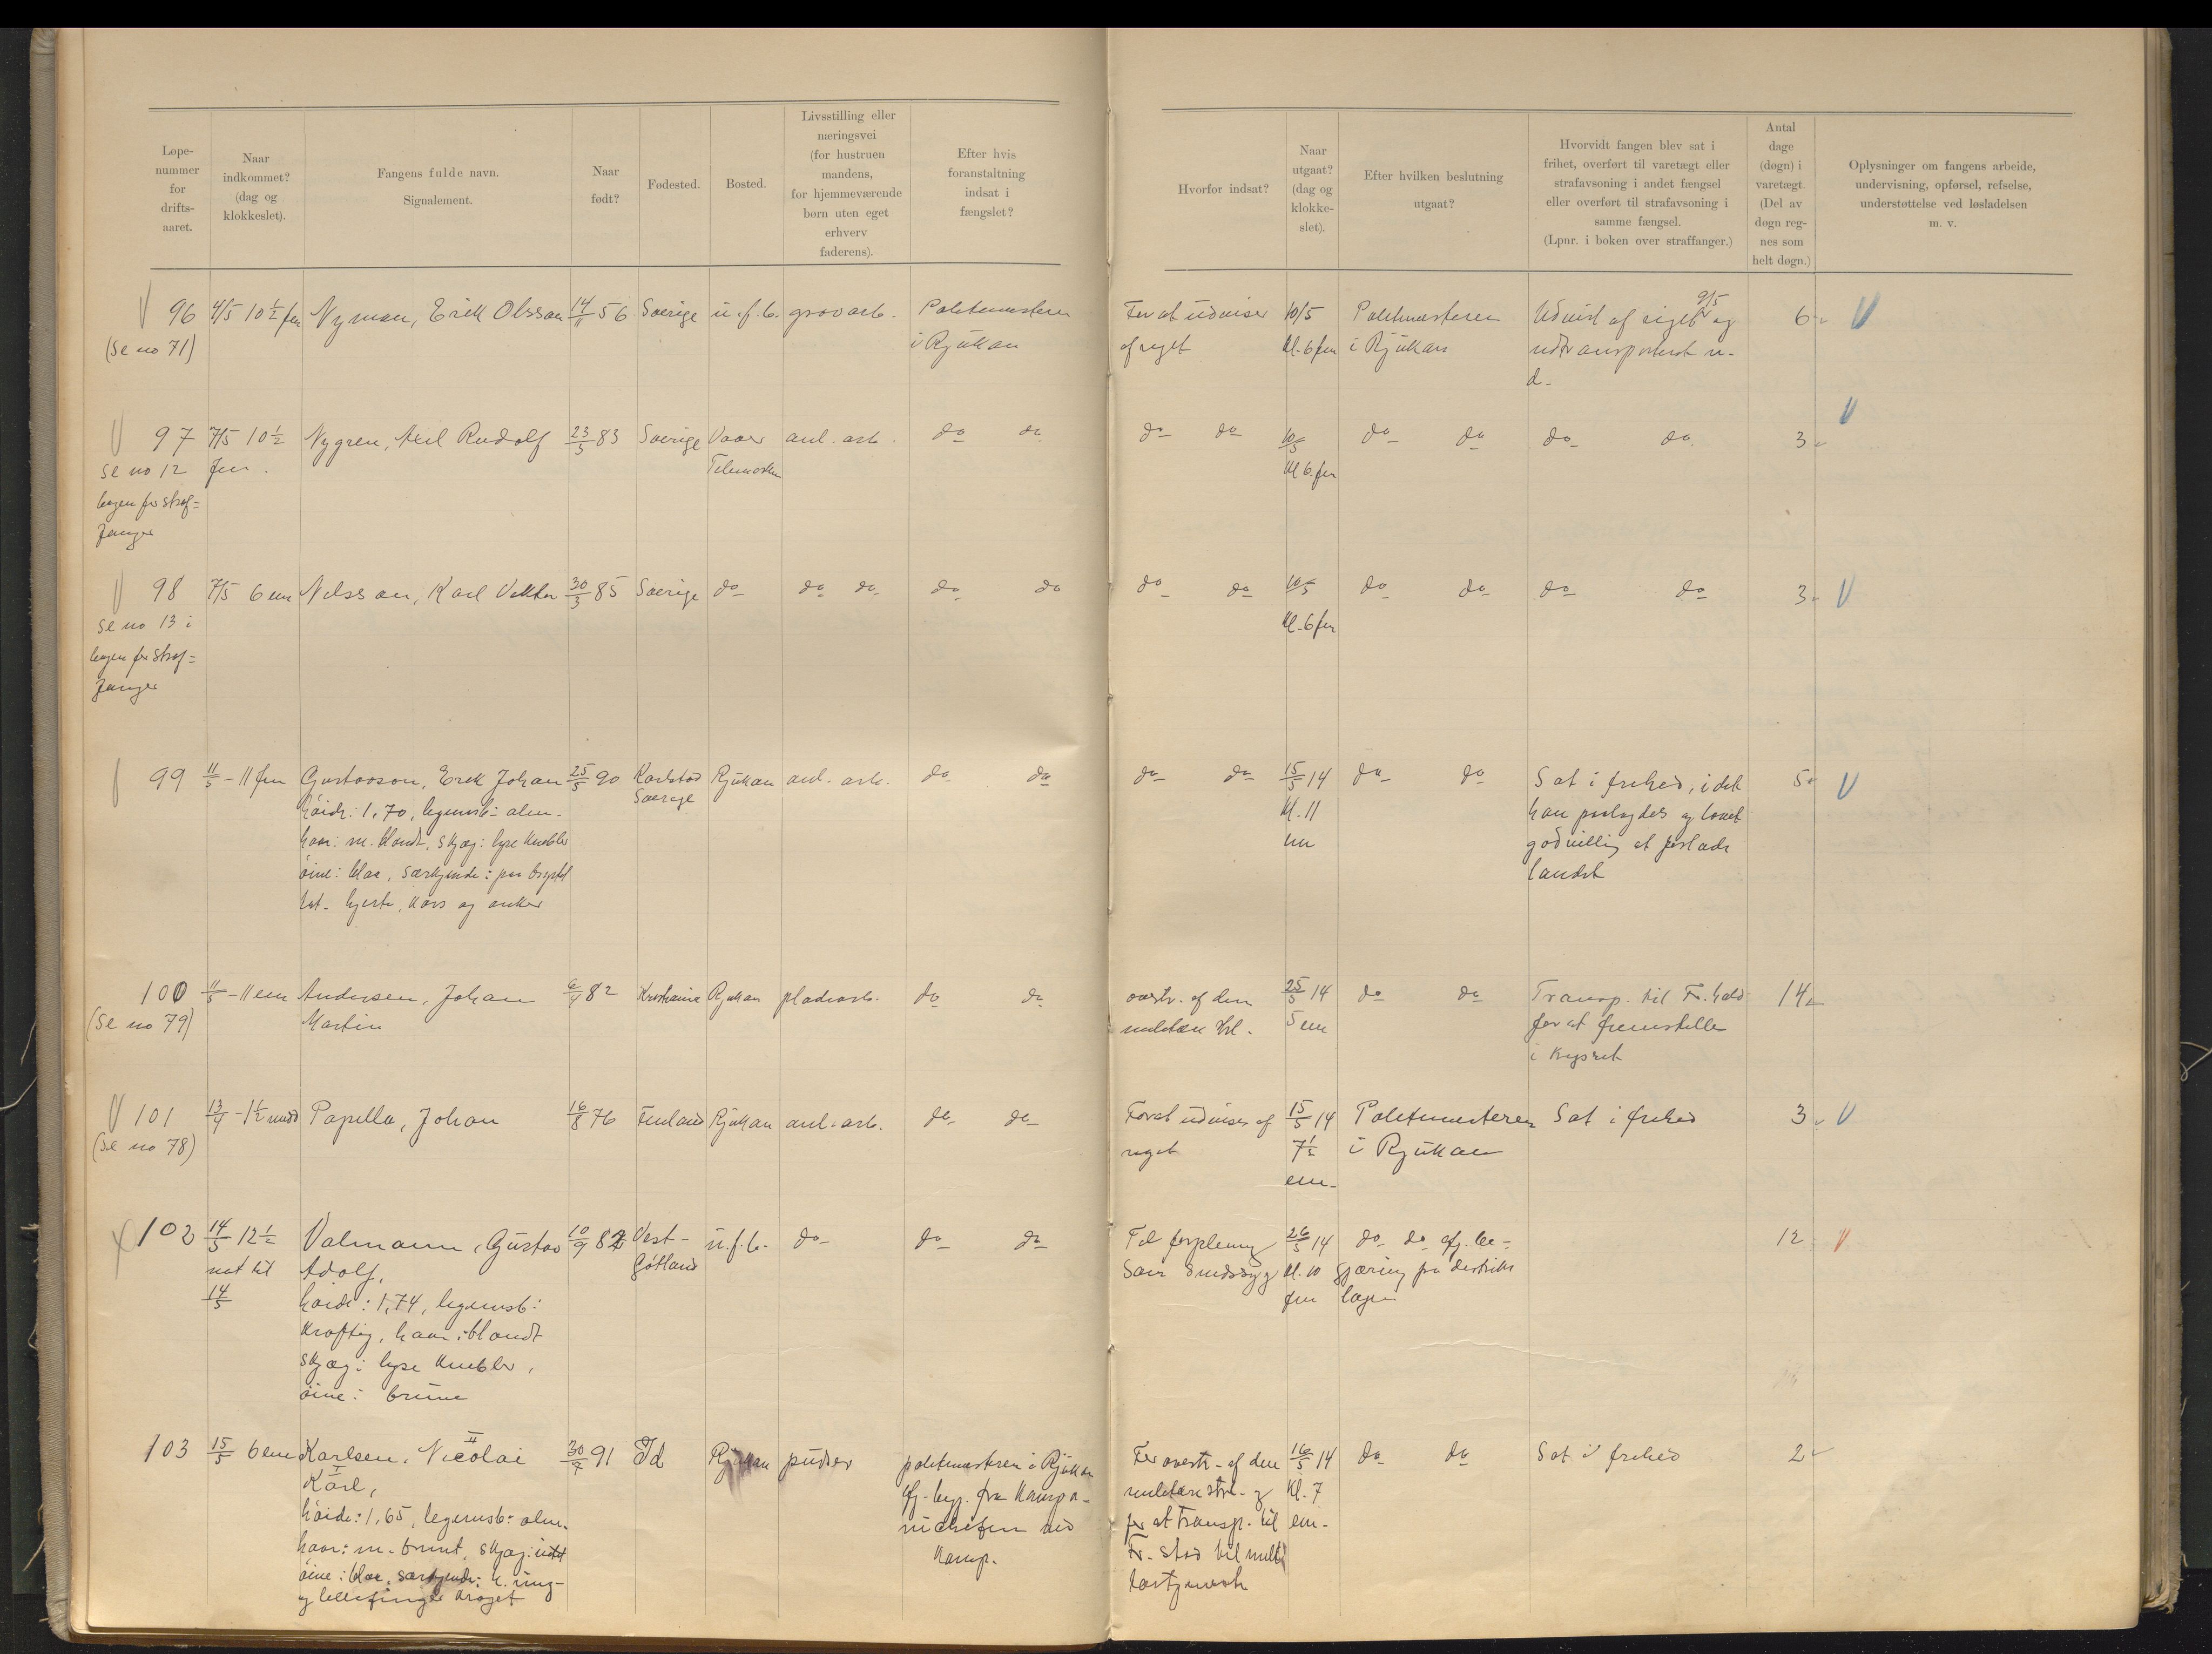 Løpe-
nummer
for
drifts-
aaret.
Naar
indkommet?
(dag og
klokkeslet).
Fangens fulde navn.
Signalement.
Naar
født?
Fødested.
Bosted.
Livsstilling eller
næringsvei
(for hustruen
mandens,
for hjemmeværende
børn uten eget
erhverv
faderens).
Efter hvis
foranstaltning
indsat i
fængslet?
Hvorfor indsat?
Naar
utgaat?
(dag og
klokke-
slet).
Efter hvilken beslutning
utgaat?
Hvorvidt fangen blev sat i
frihet, overført til varetægt eller
strafavsoning i andet fængsel
eller overført til strafavsoning i
samme fængsel.
(Lpnr. i boken over straffanger.)
Antal
dage
(døgn) i
varetægt.
(Del av
døgn reg-
nes som
helt døgn.)
Oplysninger om fangens arbeide,
undervisning, opførsel, refselse,
understøttelse ved løsladelsen
m. v.
96 4/5 10½ fm Nyman, Erik Olsson 14/11 56 Sverige u. f. b. grovarb. Politimesteren For at udvises 10/5 Politimesteren Udvist af riget 9/5 og 6
(se no 71) i Rjukan af riget kl. 6 fm i Rjukan udtransporteret s.
d.
97 7/5 10½ Nygren, Axel Rudolf 23/5 83 Sverige Vaaer anl. arb. do do do do 10/5 do do do do 3
se no 12 fm. Telemarken kl 6 fm
bogen for straf=
fanger
98 7/5 6 em Nilsson, Karl Viktor 30/3 85 Sverige do do do do do do do 10/5 do do do do 3
se no 13 i kl. 6 fm
bogen for straf=
fanger
99 11/5 - 11 fm Gustavson, Erik Johan 25/5 90 Karlstad Rjukan anl. arb. do do do do 15/5 14 do do Sat i frihed, idet 5
høide: 1,70, legemsb: alm. Sverige kl. 11 han paalagdes og lovet
haar: m. blondt, skjæg: lyse knebler em godvillig at forlade
øine: blaa, særkjende: paa brystet landet
tat. hjerte, kors og anker
100 11/5 - 11 em Andersen, Johan 6/4 82 Kristiania Rjukan pladsarb. do do overtr. af den 25/5 14 do do Transp. til Fr.hald 14
(se no 79) Martin militære strl. 5 em for at fremstilles
i krigsret
101 13/4 - 1½ midd Papilla, Johan 16/8 76 Finland Rjukan anl. arb. do do For at udvises af 15/5 14 Politimesteren Sat i frihed 3
(se no 78) riget 7½ i Rjukan
em.
102 14/5 12½ Valmann, Gustav 10/9 82 Vest- u. f. b. do do do Til forpleining 26/5 14 do do efj. be- 12
nat til Adolf, Götland som sindssyg kl. 10 gjæring fra distrikts
14/5 høide: 1,74, legemsb: fm lægen
kraftig, haar: blondt
skjæg: lyse knebler,
øine: brune
103 15/5 6 em Karlsen, Nicolai II 30/7 91 Id Rjukan pudser politimesteren i Rjukan For overtr. af den 16/5 14 do do Sat i frihed 2
Karl, I efj. begj. fra kompa- militære strl. og kl. 7
høide: 1,65, legemsb: alm. nichefen ved for at transp. til em.
haar: m. brunt, skjæg: intet komp. Fr. stad til
øine: blaa, særkjende: h. ring-
og lillefinger kroget